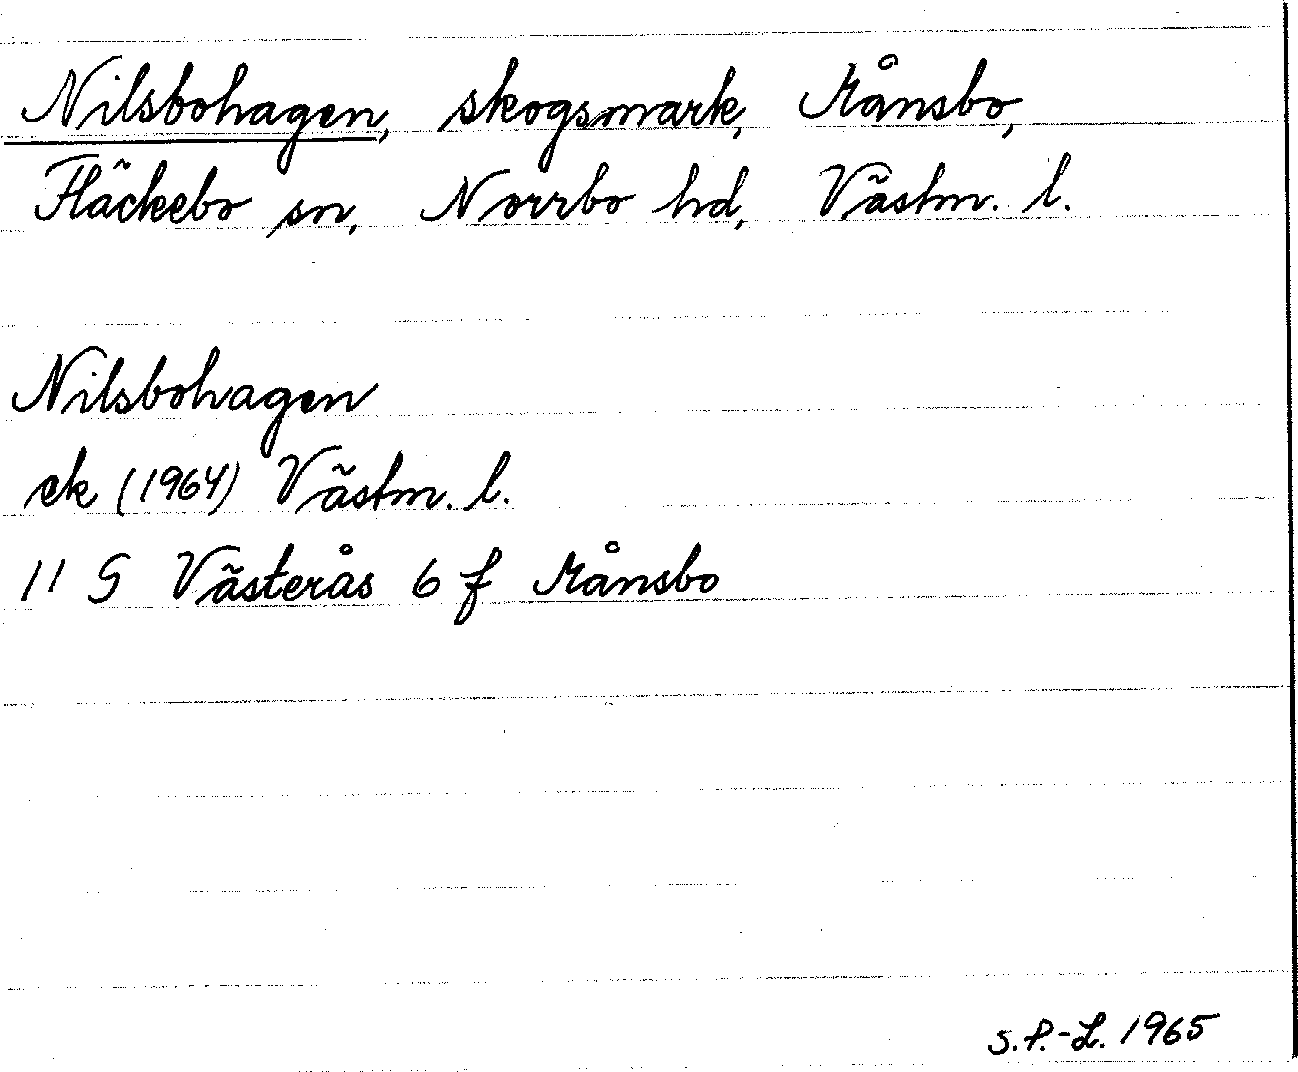 Nilsbohagen, skogsmark, Månsbo,
Fläckebo sn, Norrbo hd, Västm. l.
Nilsbohagen
ek (1964) Västm. l.
11 G Västerås 6 f Månsbo
S.P.-L. 1965